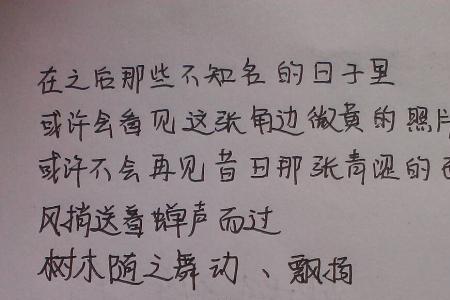 在之后那些不知名的日子里
或许会看见这张角边微黄的照片
或许不会再见昔日那张青涩的
风捎送着蝉声而过
树木随之舞动、飘扬